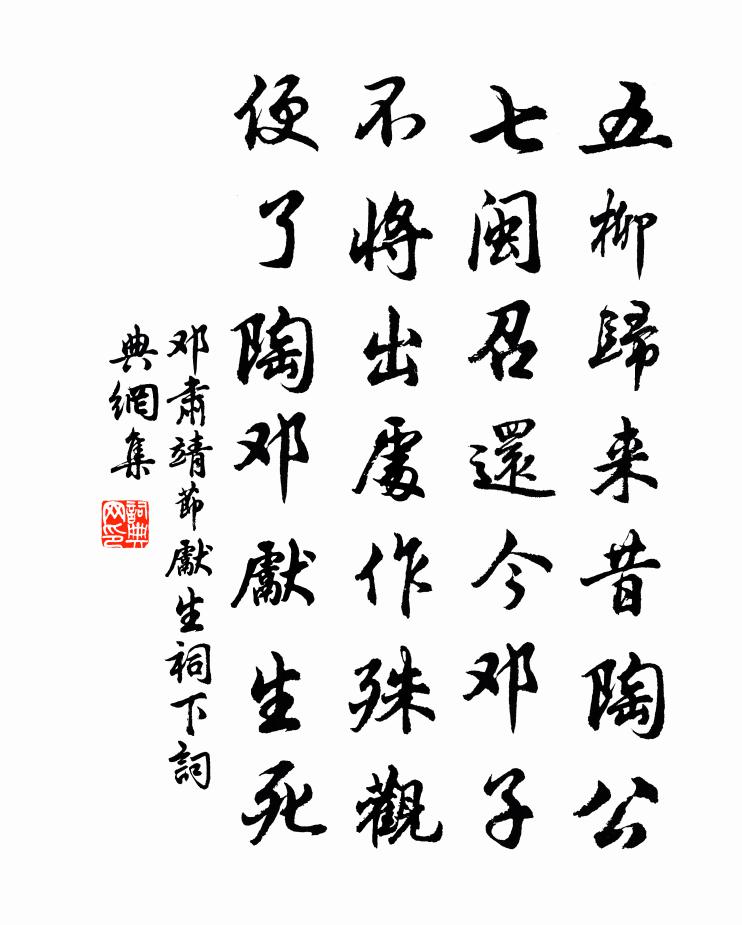 五柳歸来昔陶公
七閩召還今邓子
不将出處作殊觀
便了陶邓獻生死
邓肅靖節獻生祠下詞
典網集
詞典网印